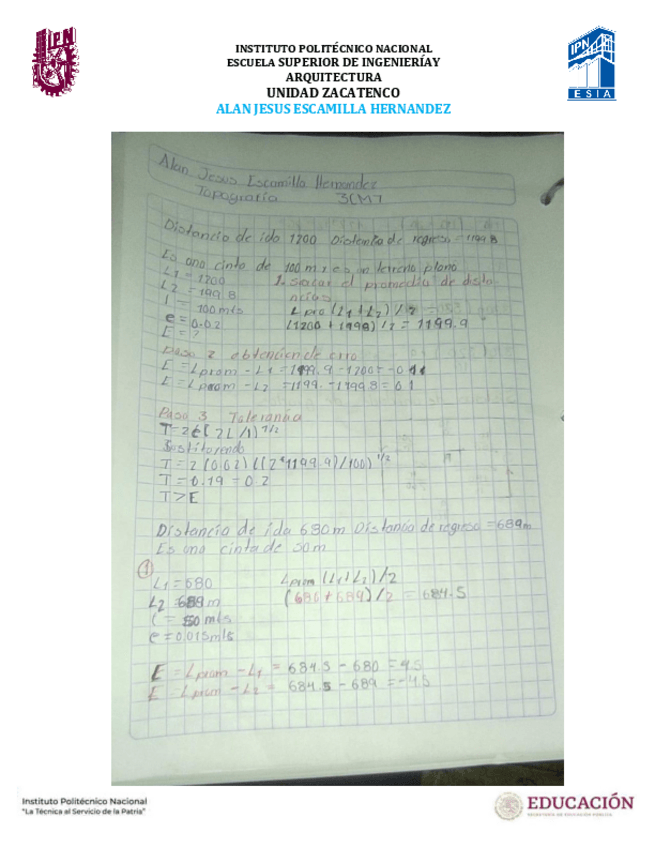 IPN
INSTITUTO POLITÉCNICO NACIONAL
ESCUELA SUPERIOR DE INGENIERÍAY
ARQUITECTURA
UNIDAD ZACATENCO
ALAN JESUS ESCAMILLA HERNANDEZ
IPN
ESIA
Alan Jesus Escamilla Hernandez
Topografia 3CM7
Distancia de ida 1200 Distancia de regreso = 1199.8
Es una cinta de 100 m x es un terreno plano
L1 = 1200 1. Sacar el promedio de distancias
L2 = 1199.8
l = 100 mts Lpro (L1+L2)/2
e = 0.02 (1200 + 1199.8)/2 = 1199.9
E = ?
Paso 2 obtencion de error
E = Lprom - L1 = 1199.9 - 1200 = -0.1
E = Lprom - L2 = 1199. - 1199.8 = 0.1
Paso 3 Tolerancia
T = 2e(2L/l)^1/2
Sustituendo
T = 2(0.02)((2*1199.9)/100)^1/2
T = 0.19 = 0.2
T > E
Distancia de ida 680 m Distancia de regreso = 689 m
Es una cinta de 50 m
1
L1 = 680 Lprom (L1+L2)/2
L2 = 689 m (680 + 689)/2 = 684.5
l = 50 mts
e = 0.015 mts
E = Lprom - L1 = 684.5 - 680 = 4.5
E = Lprom - L2 = 684.5 - 689 = -4.5
Instituto Politécnico Nacional
"La Técnica al Servicio de la Patria"
EDUCACIÓN
SECRETARÍA DE EDUCACIÓN PÚBLICA